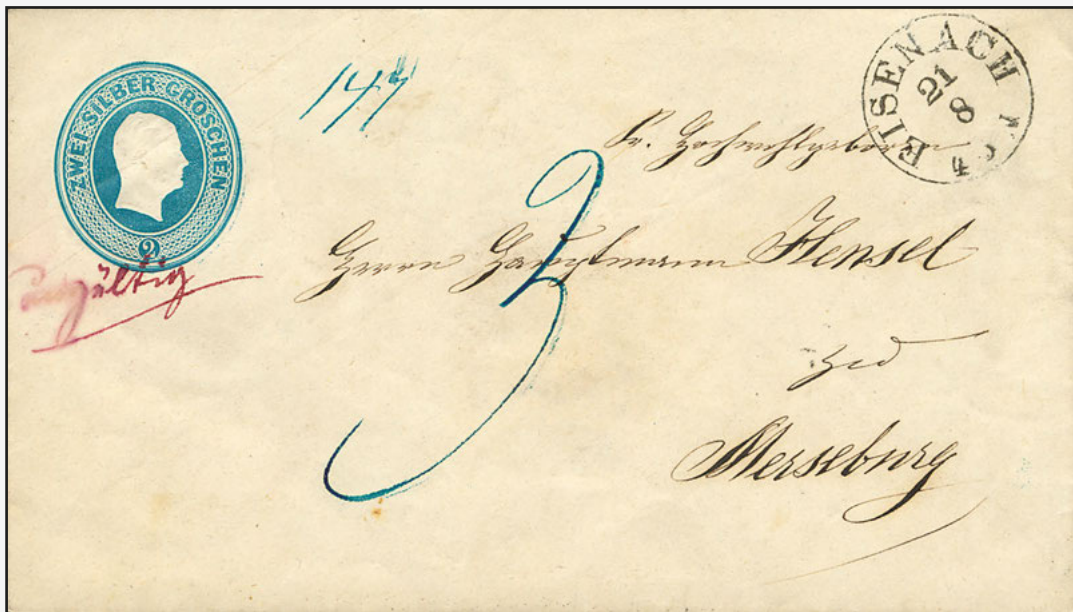 ZWEI SILBER-GROSCHEN
2
ungültig
EISENACH
21
8
Sr. Hochwohlgeboren
Herrn Hauptmann Hensel
3
Merseburg